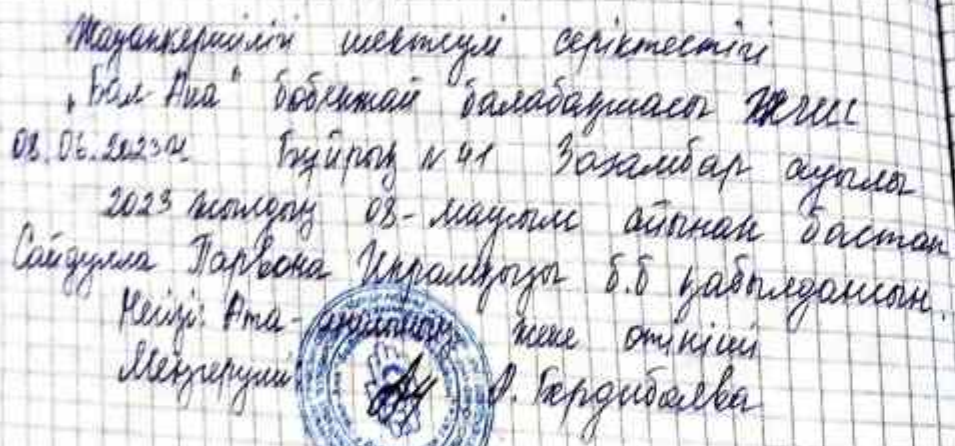 Жауапкершілігі шектеулі серіктестігі
„Бал-Ана" бөбекжай балабақшасы ЖШС
08.06.2023ж Бұйрық №41 Зазамбар ауылы
2023 жылдың 08-маусым айынан бастап
Сайдулла Парвона Икрамқызы б.б қабылдансын.
Негізі: Ата-ананың жеке өтініші
Меңгеруші: О. Бердибаева